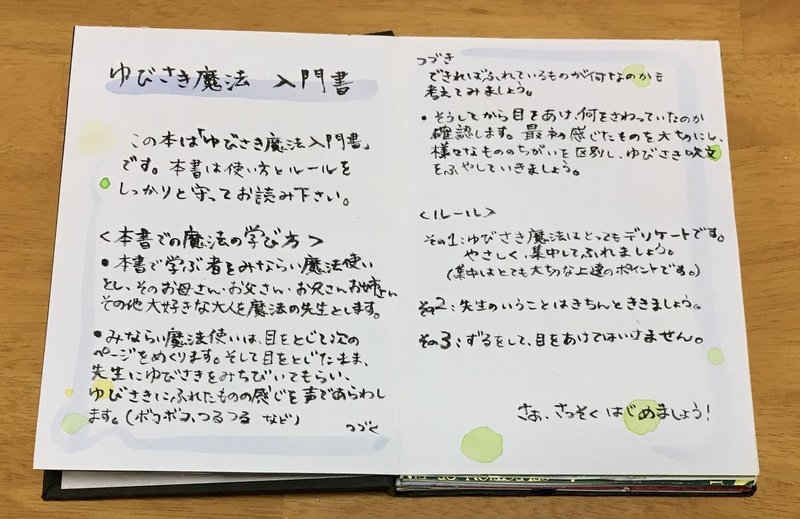 ゆびさき魔法 入門書
この本は「ゆびさき魔法入門書」
です。本書は使い方とルールを
しっかりと守ってお読み下さい。
<本書での魔法の学び方>
●本書で学ぶ者をみならい魔法使い
とし、そのお母さん・お父さん・お兄さん・お姉さん
その他大好きな大人を魔法の先生とします。
●みならい魔法使いは、目をとじて次の
ページをめくります。そして目をとじたまま、
先生にゆびさきをみちびいてもらい、
ゆびさきにふれたものの感じを声であらわし
ます。(ボコボコ、つるつる など)
つづく
つづき
できればふれているものが何なのかも
考えてみましょう。
●そうしてから目をあけ、何をさわっていたのか
確認します。最初感じたものを大切にし、
様々なもののちがいを区別し、ゆびさき呪文
をふやしていきましょう。
<ルール>
その1:ゆびさき魔法はとってもデリケートです。
やさしく、集中してふれましょう。
(集中はとても大切な上達のポイントです。)
その2:先生のいうことはきちんとききましょう。
その3:ずるをして、目をあけてはいけません。
さぁ、さっそく はじめましょう!